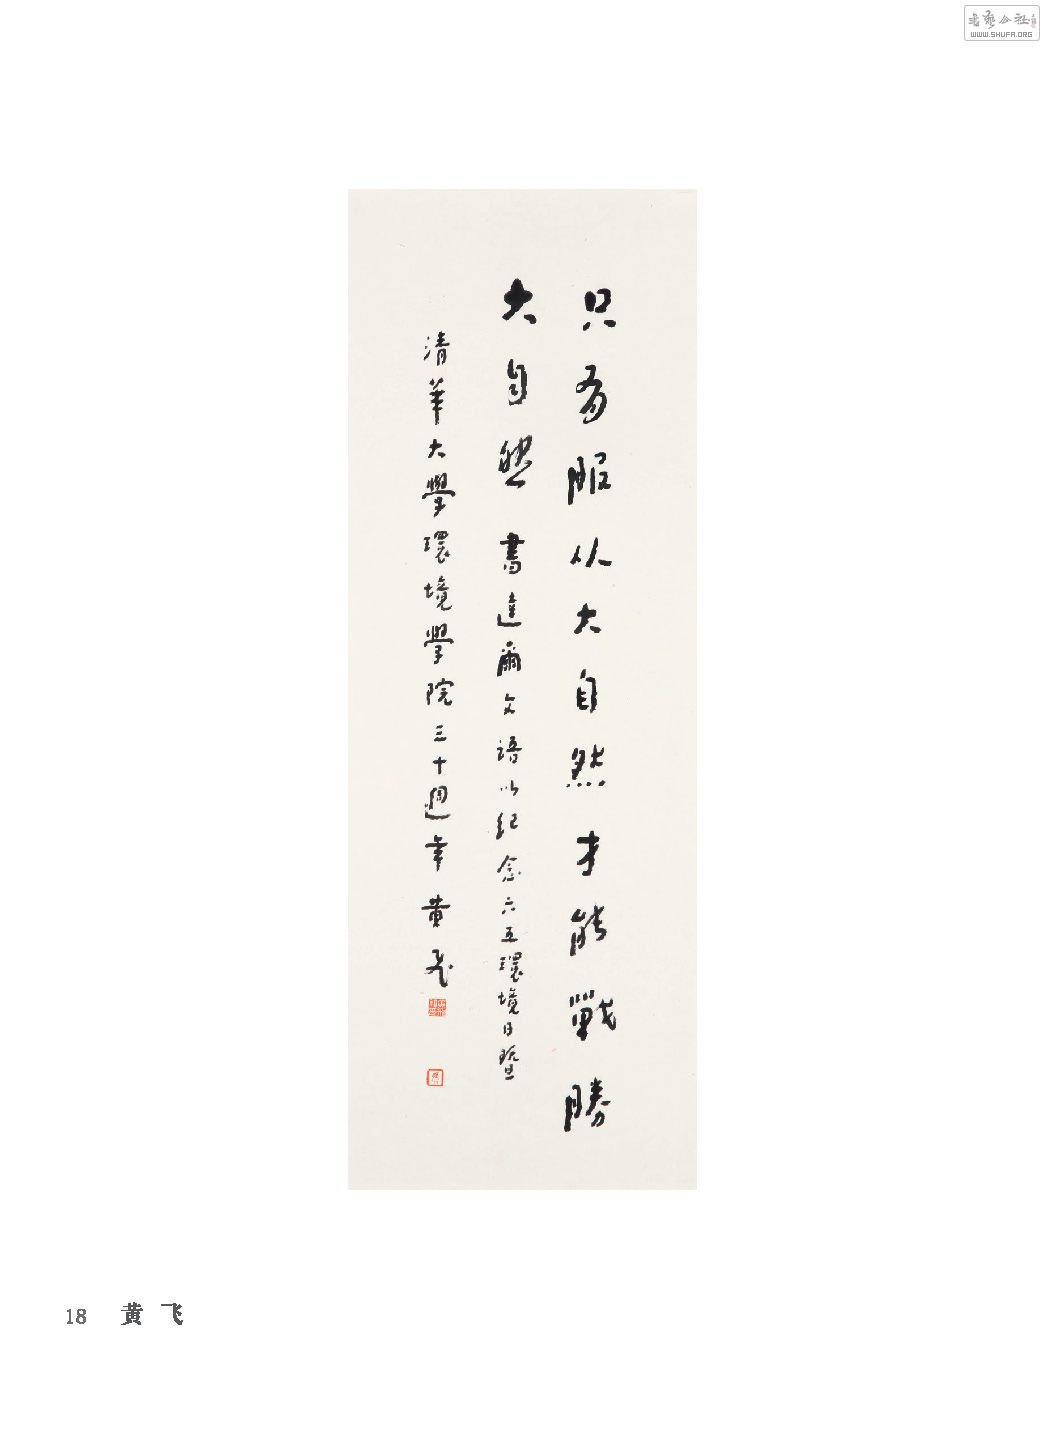 只有服从大自然才能戰勝
大自然 書達爾文語以紀念六五環境日暨
清華大學環境學院三十週年 黄飞
18 黄 飞
书艺公社
WWW.SHUFA.ORG